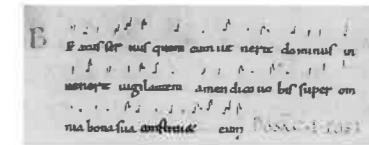 B
E atus ser uus quem cum ue nerit dominus in
uenerit uigilantem amen dico uo bis super om
nia bona sua constituet eum